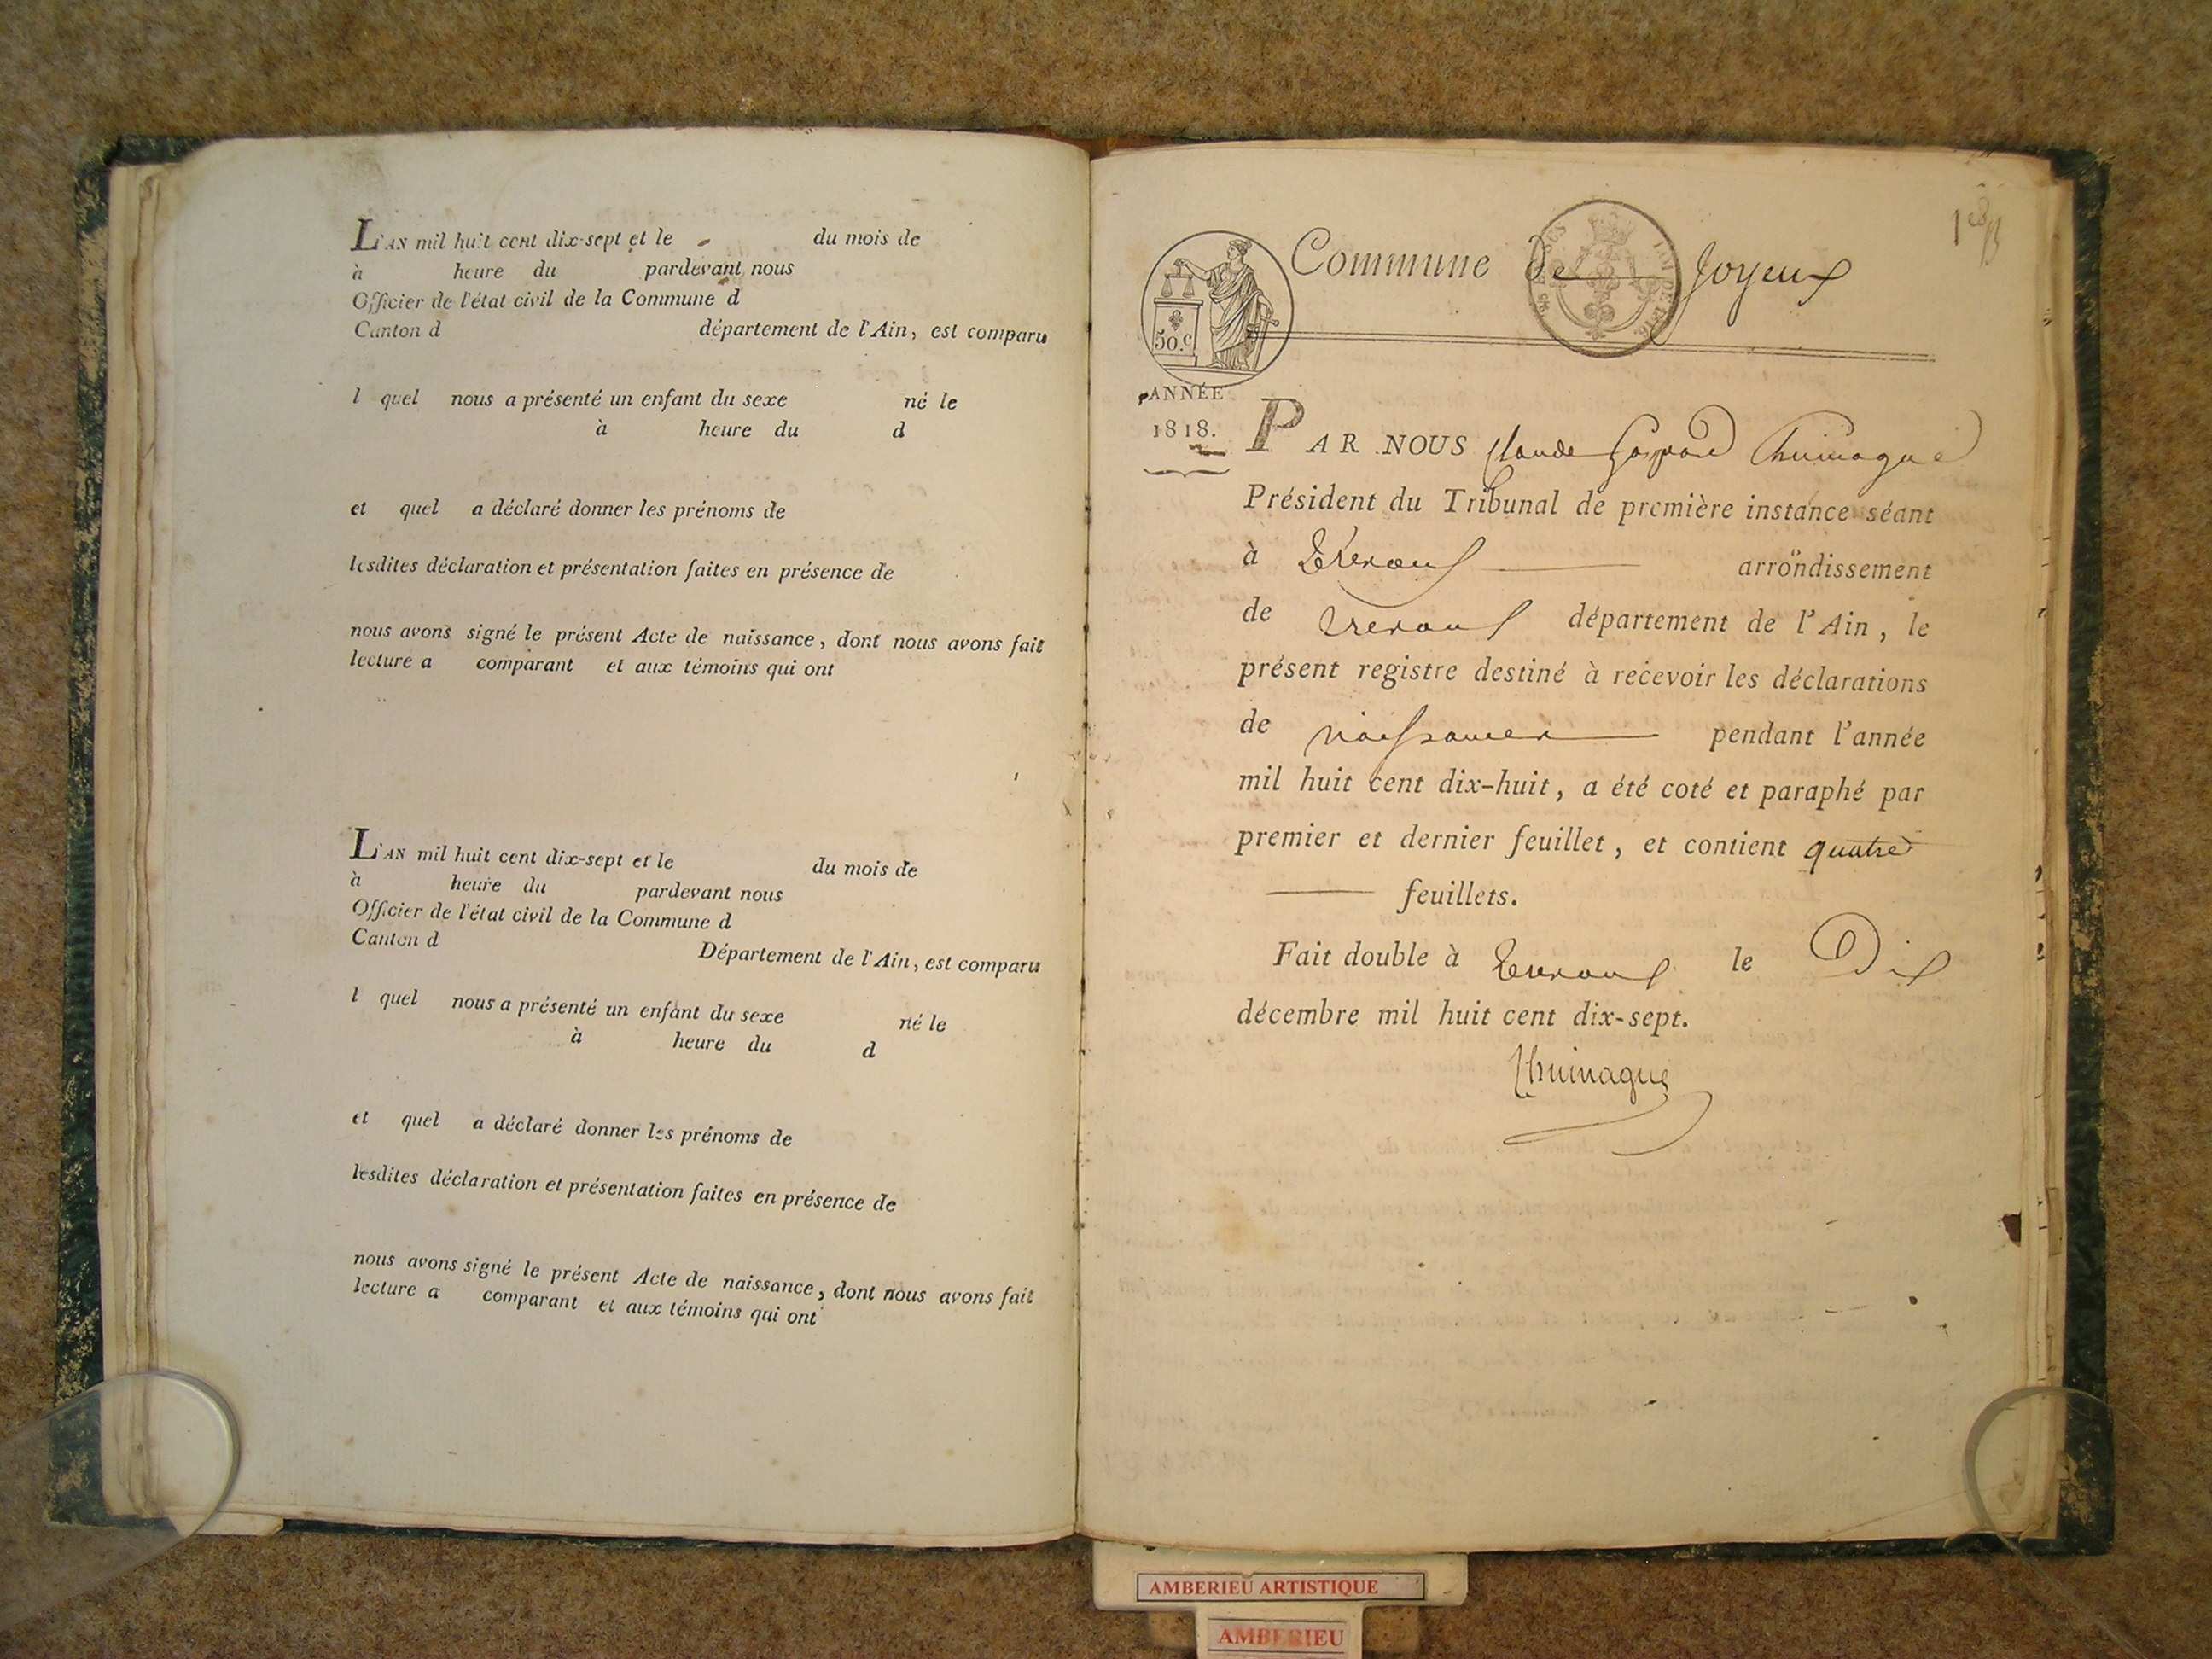 L'AN mil huit cent dix-sept et le du mois de
à heure du pardevant nous
Officier de l'état civil de la Commune d
Canton d département de l'Ain, est comparu
l quel nous a présenté un enfant du sexe né le
à heure du d
et quel a déclaré donner les prénoms de
lesdites déclaration et présentation faites en présence de
nous avons signé le présent Acte de naissance, dont nous avons fait
lecture a comparant et aux témoins qui ont
L'AN mil huit cent dix-sept et le du mois de
à heure du pardevant nous
Officier de l'état civil de la Commune d
Canton d Département de l'Ain, est comparu
l quel nous a présenté un enfant du sexe né le
à heure du d
et quel a déclaré donner les prénoms de
lesdites déclaration et présentation faites en présence de
nous avons signé le présent Acte de naissance, dont nous avons fait
lecture a comparant et aux témoins qui ont
Commune de Joyeux
50.c
ANNÉE
1818.
PAR NOUS Claude Gaspard
Président du Tribunal de première instance séant
à Trevoux arrondissement
de Trevoux département de l'Ain, le
présent registre destiné à recevoir les déclarations
de naissances pendant l'année
mil huit cent dix-huit, a été coté et paraphé par
premier et dernier feuillet, et contient quatre
feuillets.
Fait double à Trevoux le Dix
décembre mil huit cent dix-sept.
AMBERIEU ARTISTIQUE
AMBERIEU